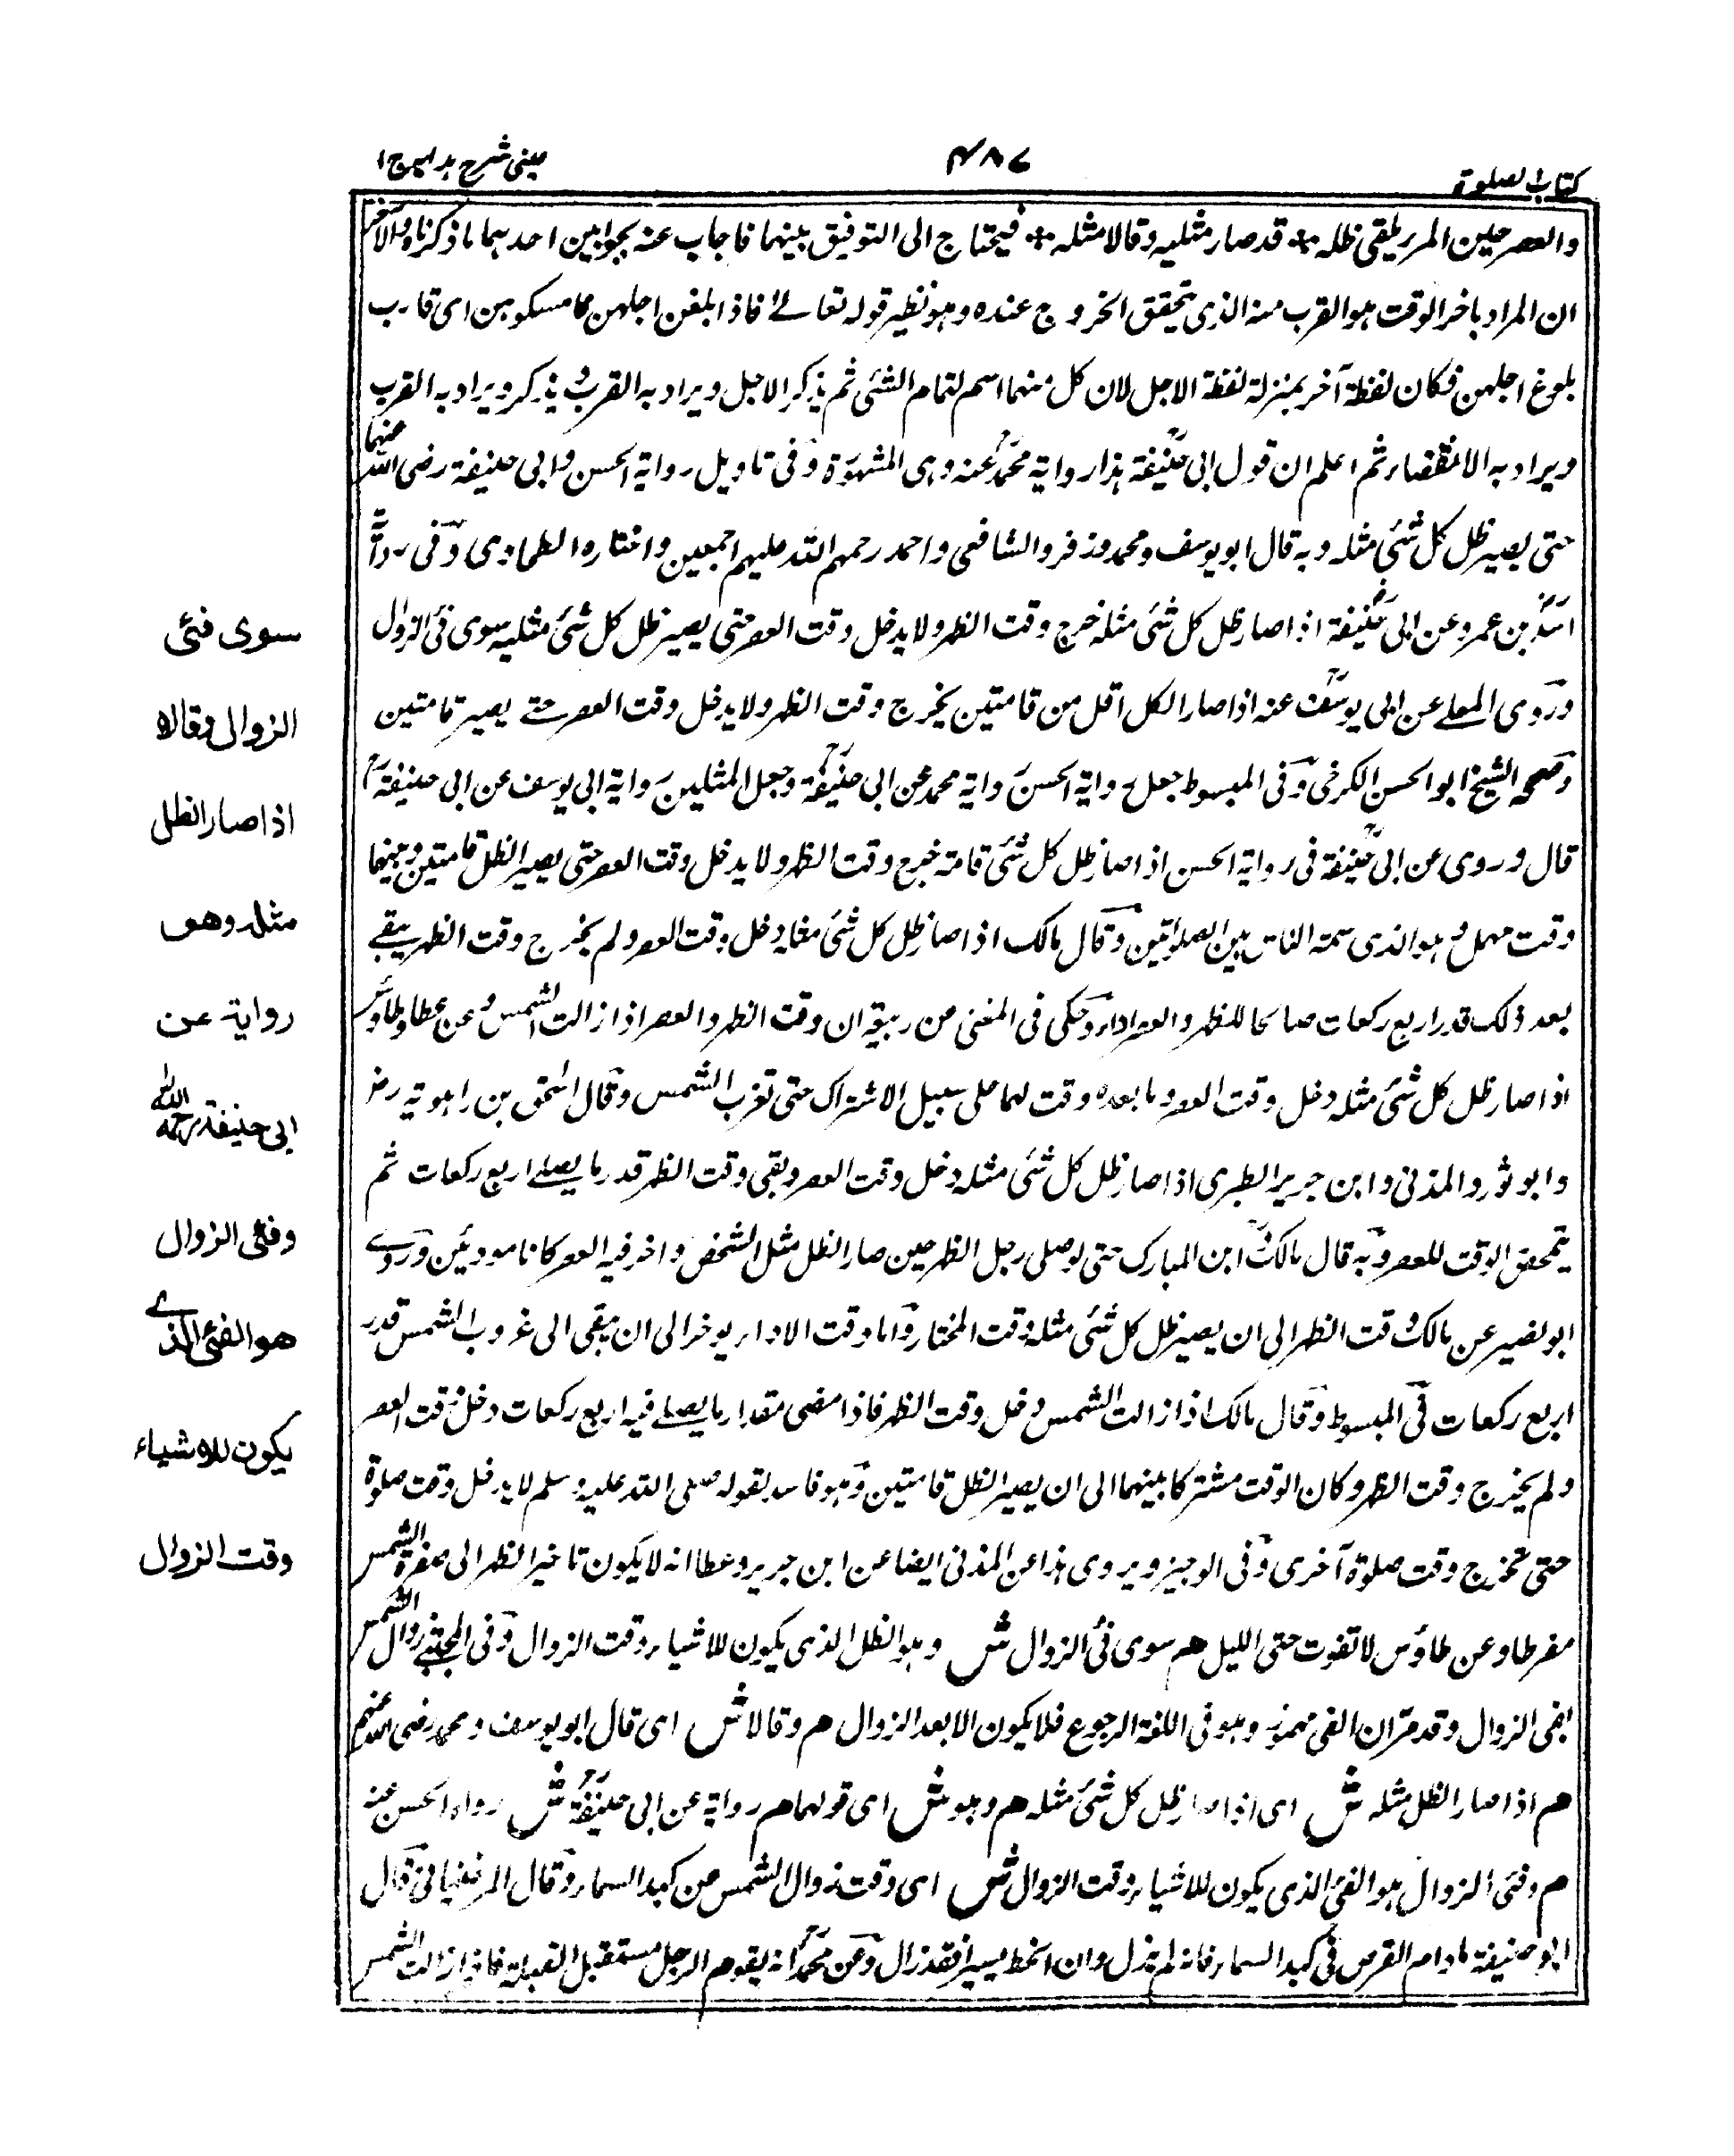 كتاب الصلوة
٤٨٧
عينى شرح هدايه ج ا
والعصر حين المرء يلقى ظله ٭ قد صار مثليه وقالا مثله ٭ فيحتاج الى التوفيق بينهما فاجاب عنه بجوابين احدهما ما ذكرناه والآخر
ان المراد باخر الوقت هو القرب منه الذى يتحقق الخروج عنده وهو نظير قوله تعالى فاذا بلغن اجلهن فامسكوهن اى قارب
بلوغ اجلهن فكان لفظة آخر بمنزلة لفظة الاجل لان كل منهما اسم لتمام الشئ ثم يذكر الاجل ويراد به القرب ويذكر ويراد به القرب
ويراد به الانقضاء ثم اعلم ان قول ابى حنيفة هذا رواية محمد عنه وهى المشهورة وفى تاويل رواية الحسن وابى حنيفة رضى الله عنهما
حتى يصير ظل كل شئ مثله وبه قال ابو يوسف ومحمد وزفر والشافعى واحمد رحمهم الله عليهم اجمعين واختاره الطحاوى وفى رواية
اسد بن عمرو عن ابى حنيفة اذا صار ظل كل شئ مثله خرج وقت الظهر ولا يدخل وقت العصر حتى يصير ظل كل شئ مثليه سوى فئ الزوال
وروى المعلى عن ابى يوسف عنه اذا صار الكل اقل من قامتين يخرج وقت الظهر ولا يدخل وقت العصر حتے يصير قامتين
وصححه الشيخ ابو الحسن الكرخى وفى المبسوط جعل رواية الحسن رواية محمد عن ابى حنيفة وجعل المثلين رواية ابى يوسف عن ابى حنيفة
قال وروى عن ابى حنيفة فى رواية الحسن اذا صار ظل كل شئ قامة خرج وقت الظهر ولا يدخل وقت العصر حتى يصير الظل قامتين وبينهما
وقت مهمل وهو الذى سمته الناس بين الصلوتين وقال مالك اذا صار ظل كل شئ مثله دخل وقت العصر ولم يخرج وقت الظهر يبقے
بعد ذلك قدر اربع ركعات صالحا للظهر والعصر اداء وحكى فى المغنى من ربيعة ان وقت الظهر والعصر اذا زالت الشمس وعن عطا وطاوس
اذا صار ظل كل شئ مثله دخل وقت العصر وما بعده وقت لهما على سبيل الاشتراك حتى تغرب الشمس وقال اسحق بن راهويه رضـ
وابو ثور والمزنى وابن جرير الطبرى اذا صار ظل كل شئ مثله دخل وقت العصر وبقى وقت الظهر قدر ما يصلے اربع ركعات ثم
يتمحض الوقت للعصر وبه قال مالك ابن المبارك حتى لو صلى رجل الظهر حين صار الظل مثل الشخص واخر فيه العصر كانا موديين وروے
ابو نصير عن مالك وقت الظهر الى ان يصير ظل كل شئ مثله وقت المختار واما وقت الاداء يوخر الى ان يبقى الى غروب الشمس قدر
اربع ركعات فى المبسوط وقال مالك اذا زالت الشمس دخل وقت الظهر فاذا مضى مقدار ما يصلے فيه اربع ركعات دخل وقت العصر
ولم يخرج وقت الظهر وكان الوقت مشتركا بينهما الى ان يصير الظل قامتين وهو فاسد بقوله صلى الله عليه وسلم لا يدخل وقت صلوة
حتى تخرج وقت صلوة آخرى وفى الوجيز ويروى هذا عن المزنى ايضا عن ابن جرير وعطا انه لا يكون تاخير الظهر الى صفرة الشمس
مفرطا وعن طاؤس لا تفوت حتى الليل هم سوى فئ الزوال ش وهو الظل الذى يكون للاشياء وقت الزوال وفى المجتبے زوال الشمس
افى الزوال وقد مر ان الفى مهموز وهو فى اللغة الرجوع فلا يكون الا بعد الزوال هم وقالا ش اى قال ابو يوسف ومحمد رضى الله عنهم
هم اذا صار الظل مثله ش اى اذا صار ظل كل شئ مثله هم وهو ش اى قولهما هم رواية عن ابى حنيفة ش رواه الحسن عنه
م وفئ الزوال هو الفئ الذى يكون للاشياء وقت الزوال ش اى وقت زوال الشمس من كبد السماء وقال المرغينانى قال
ابو حنيفة مادام القرص فى كبد السماء فانه لم يزل وان انحط يسيرا فقد زال وعن محمد انه يقوم الرجل مستقبل القبلة فاذا زالت الشمس
سوى فئى
الزوال وقالا
اذا صار الظل
مثله وهو
رواية عن
ابى حنيفة رحمه الله
وفئ الزوال
هو الفئ الذے
يكون للاشياء
وقت الزوال